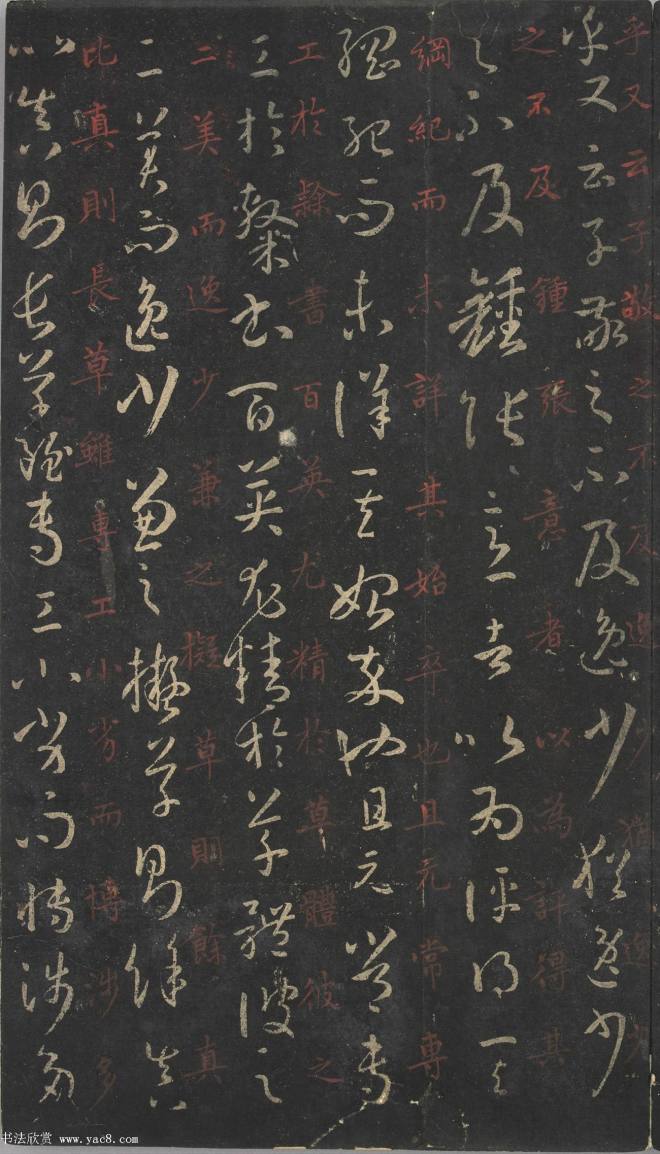 乎又云子敬之不及逸少猶逸少
乎又云子敬之不及逸少猶逸少
之不及鍾張意者以為評得其
之不及鍾張意者以為評得其
綱紀而未詳其始卒也且元常專
綱紀而未詳其始卒也且元常專
工於隸書百英尤精於草體彼之
工於隸書百英尤精於草體彼之
二美而逸少兼之擬草則餘真
二美而逸少兼之擬草則餘真
比真則長草雖專工小劣而博涉多
比真則長草雖專工小劣而博涉多
书法欣赏 www.yac8.com